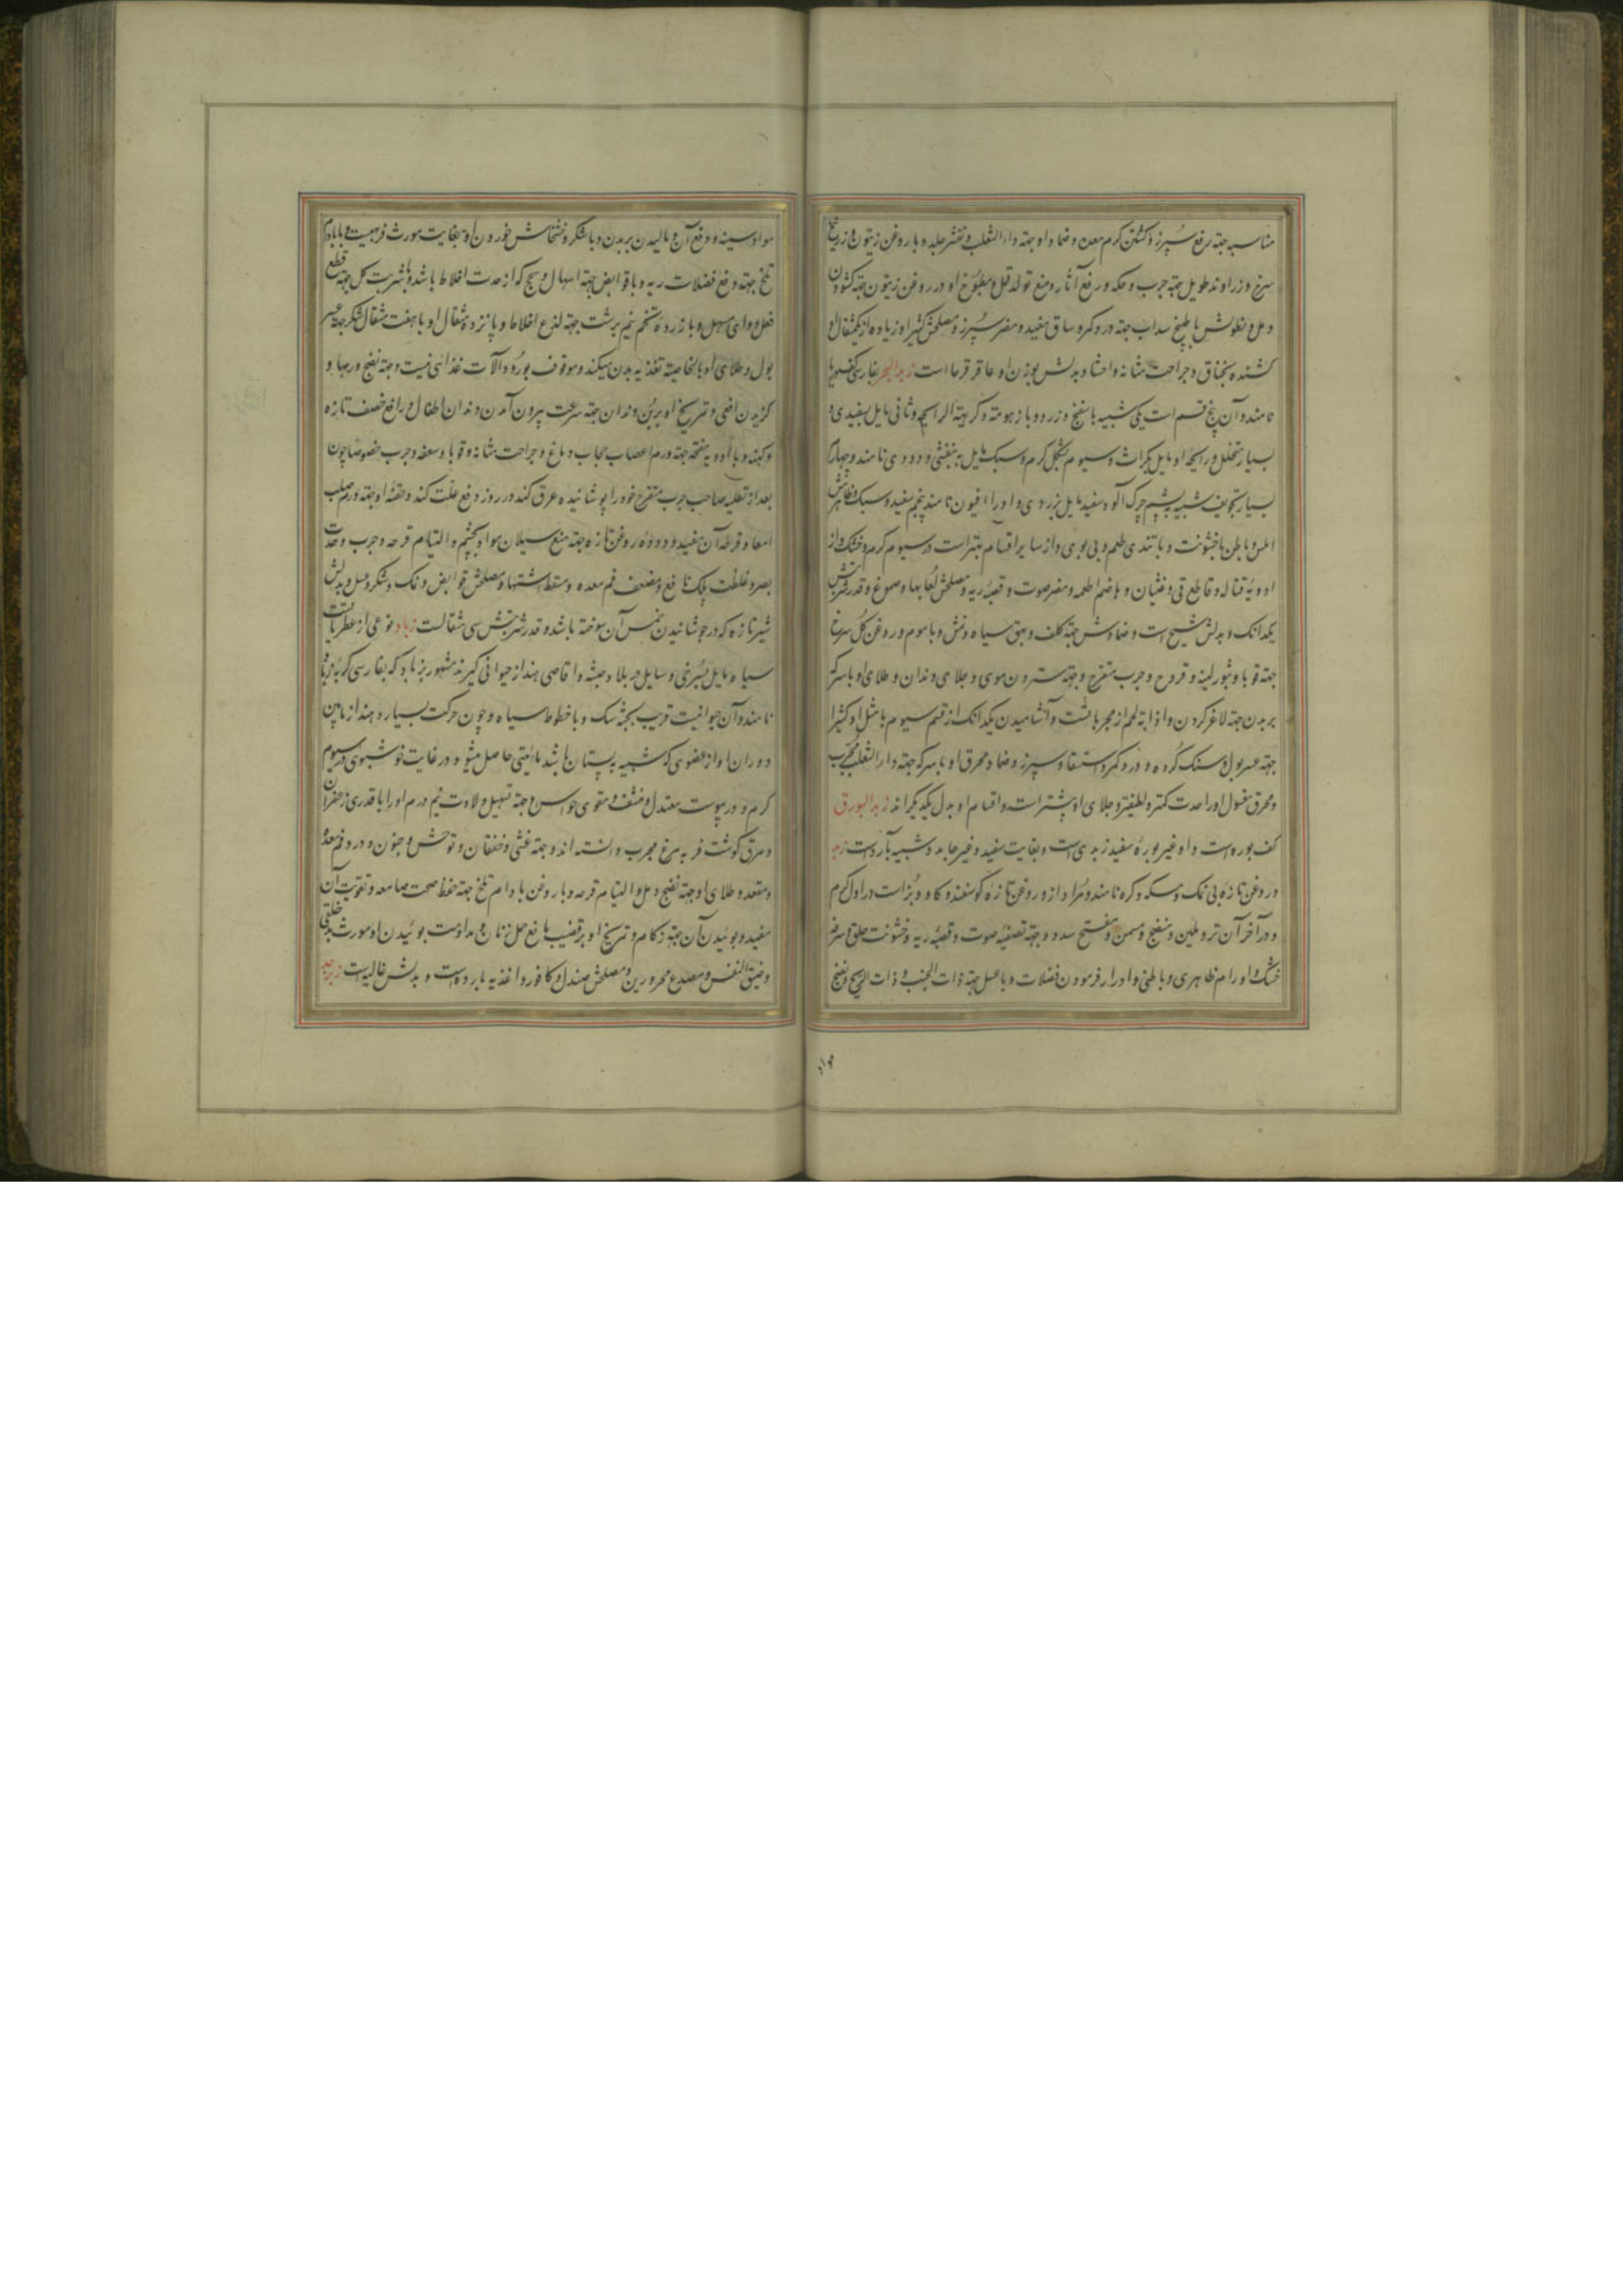 مناسبه جهة رفع سپرز و کشتن کرم معده و ضماد او جهة داء الثعلب و تقشر جلد و با روغن زیتون و زرنیخ
سرخ و زراوند طویل جهة جرب و حکه و رفع آثار و منع تولد قمل و مطبوخ او در روغن زیتون جهة کشودن
دمل و نطولش با طبیخ سداب جهة درد کمر و ساق مفید و مضر سپرز و مصلحش کتیرا و زیاده از یکمثقال او
کشنده بخناق و جراحت مثانه و احشا و بدلش بوزن او عاقرقرحا است زبد البحر بفارسی کف دریا
نامند و آن پنج قسم است یکی شبیه باسفنج و زرد و با زهومة و کریهة الرایحه و ثانی مایل بسفیدی و
بسیار متخلل و رایحه او مایل بکراث و سیوم بشکل کرم و سبک مایل به بنفشی و دودی نامند و چهارم
بسیار تجویف شبیه بپشم چرک آلود سفید مایل بزردی و او را افیون نامند پنجم سفید و سبک و ظاهرش
املس و باطن با خشونت و با تندی طعم و بی بوی و از سایر اقسام بهتر است در سیوم گرم و خشک و از
ادویهٔ قتاله و قاطع قی و غثیان و هاضم اطعمه و مضر صوت و قصبهٔ ریه و مصلحش لعابها و صموغ و قدر شربتش
یکدانک و بدلش شیح است و ضمادش جهة کلف و بهق سیاه و نمش و با موم و روغن گل سرخ
جهة قوبا و بثور لبنیه و قروح و جرب متقرح و جهة ستردن موی و جلای دندان و طلای او با سرکه
بر بدن جهة لاغر کردن و اذابهٔ لحم از مجرباتست و آشامیدن یکدانک از قسم سیوم با مثل او کتیرا
جهة عسر بول و سنک کرده و درد کمر و استسقا و سپرز و ضماد محرق او با سرکه جهة داء الثعلب مجرب
و محرق مغسول او را حدت کمتر و لطیفتر و جلای او بیشتر است و اقسام او بدل یکدیگراند زبد البورق
کف بوره است و او غیر بورهٔ سفید زبدی است و بغایت سفید و غیر جامد و شبیه بآرد است زبد
در روغن تازه بی نمک و مسکه و کره نامند و مراد از و روغن تازه گوسفند و کاو و بز است در اول گرم
و در آخر آن تر و ملین و منضج و مسمن و مفتح سدد و جهة تصفیهٔ صوت و قصبهٔ ریه و خشونت حلق و سرفه
خشک و اورام ظاهری و باطنی و ادرار فرمودن فضلات و با عسل جهة ذات الجنب و ذات الریه و نضج
مواد سینه و دفع آن و مالیدن بر بدن و با شکر و خشخاش خوردن او بغایت مورث فربهیست و با بادام
تلخ جهة دفع فضلات ریه و با قوابض جهة اسهال و سحج که از حدت اخلاط باشد و با شربت گل جهة قطع
فعل دوای مسهل و با زردهٔ تخم نیم برشت جهة لذع اخلاط و پانزده مثقال او با هفت مثقال شکر جهة عسر
بول و طلای او بالخاصیة تغذیه بدن میکند و موقوف بورود آلات غذائی نیست و جهة نضج ورمها و
گزیدن افعی و تمریخ او بر بن دندان جهة سرعت بیرون آمدن دندان اطفال و رافع خصف تازه
و کهنه و با ادویه مفتحه جهة ورم اعصاب حجاب دماغ و جراحت مثانه و قوبا و سعفه و جرب خصوصا چون
بعد از تطلیه صاحب جرب متقرح خود را پوشانیده عرق کند در روز دفع علت کند و حقنهٔ او جهة ورم صلب
امعا و قرحهٔ آن مفید و دودهٔ روغن تازه جهة منع سیلان مواد بچشم و التیام قرحه و جرب و حدت
بصر و غلظت پلک نافع و مضعف فم معده و مسقط اشتها و مصلحش قوابض و نمک و شکر و عسل و بدلش
شیر تازه که در جوشانیدن خمس آن سوخته باشد و قدر شربتش سی مثقالست زباد نوعی از عطریات
سیاه مایل بسرخی و سایل در بلاد حبشه و اقاصی هند از حیوانی گیرند مشهور بزباد که بفارسی گربه زباد
نامند و آن حیوانیست قریب بجثه سک و با خطوط سیاه و چون حرکت بسیار دهند از مابین
دو ران او از عضوی که شبیه بپستان باشد مائیتی حاصل میشود و در غایت خوشبوی در سیوم
گرم و در یبوست معتدل و منشف و مقوی حواس و جهة تسهیل ولادت نیم درم او را با قدری زعفران
و مرق گوشت فربه مرغ مجرب دانسته اند و جهة غشی و خفقان و توحش و جنون و درد فم معده
و مقعد و طلای او جهة نضج دمل و التیام قرحه و با روغن بادام تلخ جهة حفظ صحت سامعه و تقویت آن
مفید و بوئیدن آن جهة زکام و تمریخ او بر قضیب مانع حمل زنان و مداومت بوئیدن او مورث بدخلقی
و ضیق النفس و مصدع محرورین و مصلحش صندل و کافور و اغذیه بارده است و بدلش غالیه است زبرجد